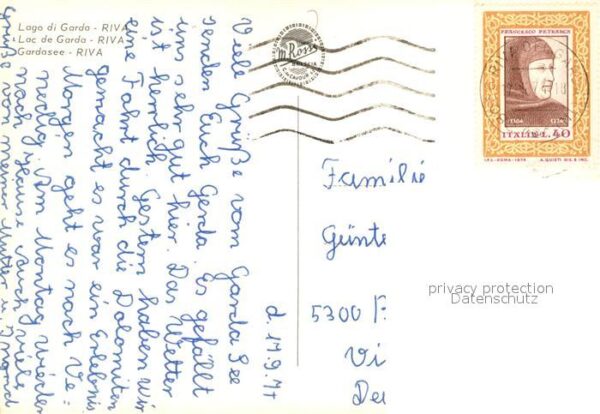 Lago di Garda - RIVA
Lac de Garda - RIVA
Gardasee - RIVA
m. Rossi
FRANCESCO PETRARCA
1304 1374
ITALIA L. 40
I.P.S.-ROMA-1974
A. QUIETI DIS. E INC.
d. 17.9.74
Viele Grüße vom Garda See
senden Euch Gerda. Es gefällt
uns sehr gut hier. Das Wetter
ist herrlich. Gestern haben wir
eine Fahrt durch die Dolomiten
gemacht es war ein Erlebnis
Morgen geht es nach Ve=
nedig. Am Montag wieder
nach Hause. Auch viele
Grüße von meiner Mutter u.
Familie
Günte
5300
Vi
privacy protection
Datenschutz